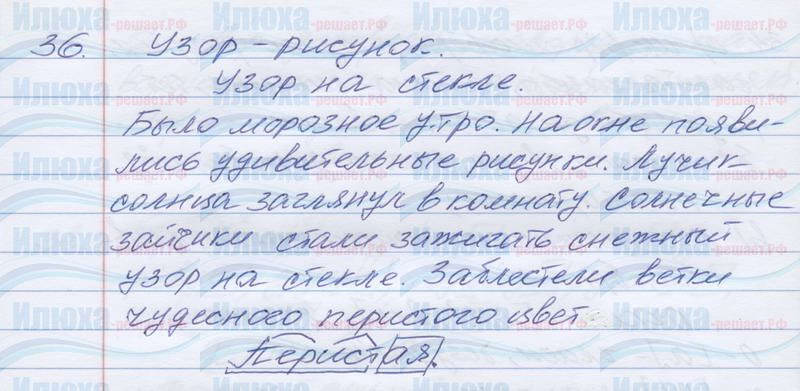 36. Узор - рисунок.
Узор на стекле.
Было морозное утро. На окне появи-
лись удивительные рисунки. Лучик
солнца заглянул в комнату. Солнечные
зайчики стали зажигать снежный
узор на стекле. Заблестели ветки
чудесного перистого цвет
Перистая.
Илюха-решает.РФ